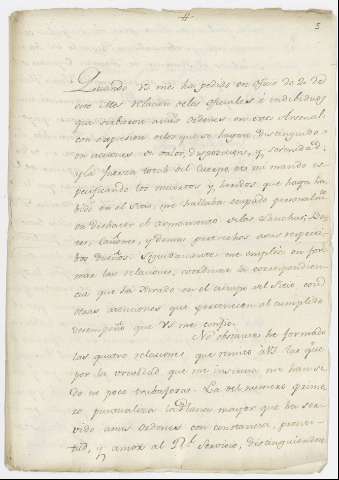 #
5
Quando VS me ha pedido en oficio de 2 de
este Mes relacion de los oficiales é individuos
que sirbieron à mis ordenes en este Arsenal
con expresion de los que se hayan distinguido
en acciones de valor, disposicion, y serenidad,
y la fuerza total del Cuerpo de mi mando es-
pecificando los muertos y heridos que haya ha-
bido en el Sitio, me hallaba ocupado personalm.te
en deshacer el armamento de las Lanchas,
y demas pertrechos a sus respecti-
bos dueños. Igualmente me empleé en for-
mar las relaciones, coordinar la correspondien-
cia que ha girado en el tiempo del Sitio, con
otras atenciones que pertenecen al cumplido
desempeño que VS me confió.
No obstante he formado
las quatro relaciones que remito à VS las que
por la brevedad que me insinua me han si-
do no poco trabajosas. La del numero prime-
ro, puntualiza la Plana mayor que ha ser-
vido à mis ordenes con constancia, pronti-
tud, y amor al R.l Servicio, distinguiendose